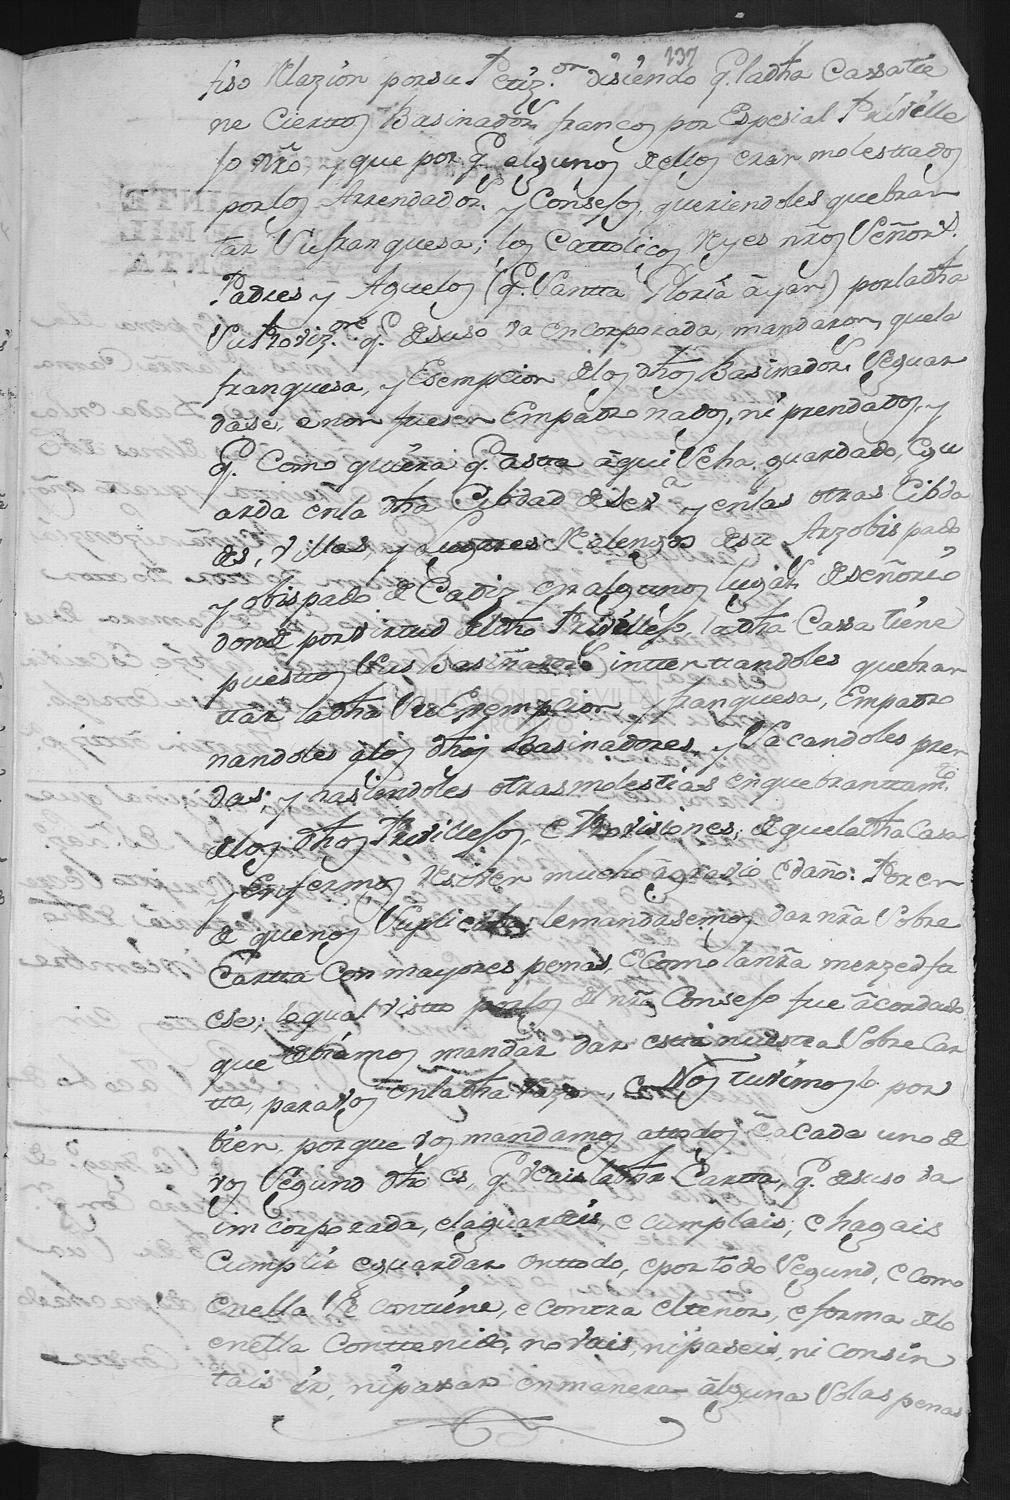 137
fiso Relazion por su Petiz.on disiendo q. la dha Cassa tie
ne Ciertos Basinador.s francos por Espesial Priville
jo nrõ, y que por q. algunos dellos eran molestados
por los Arrendador.s y Consejos, queriendoles quebran
tar Su franquesa; los Cattolicos Reyes nrõs Señor.s
Padres y Aguelos (q. Santta Gloria ayan) por la dha
Su Proviz.on q. desuso va encorporada, mandaron, que la
franquesa, y Esempcion de los dhos Basinador.s Seguar
dase, e non fuesen Empadronados, ni prendados, y
q. Como quiera q. asta aqui Seha guardado, Egu
arda en la dha Cibdad de Sev.a y en las otras Cibda
des, Villas, y Lugares Realengos desse Arzobispado
y obispado de Cadiz en algunos lugar.s de señorio
donde por virtud del dho Privillejo la dha Cassa tiene
puestos Sus Basinador.s, inttenttandoles quebran
ttar la dha Su Exempcion y franquesa, Empadro
nandoles a los dhos Basinadores, y Sacandoles pren
das; y hasiendoles otras molestias en quebranttam.to
de los dhos Privillejos, e Provisiones; de que la dha Casa
y Enfermos resiven mucho agravio e daño: Por en
de que nos Suplicaba le mandasemos dar nrã Sobre
Cartta Con mayores penas, E como la nrã merzed fu
ese; lo qual visto por los del nrõ Consejo fue acordado
que debiamos mandar dar estta nuestra Sobre Car
tta, para vos en la dha razon, e Nos tuvimoslo por
bien, porque vos mandamos attodos e a cada uno de
vos Segund dho es, q. veais la dha Cartta, q. desuso va
imcorporada, e la guardeis, e cumplais, e hagais
Cumplir e guardar enttodo, e por todo Segund, e como
enella Se contiene, e contra el tenor, e forma delo
enella Conttenido, no vais, ni paseis, ni consin
tais ir, ni pasar en manera alguna Solas penas
DIPUTACIÓN DE SEVILLA